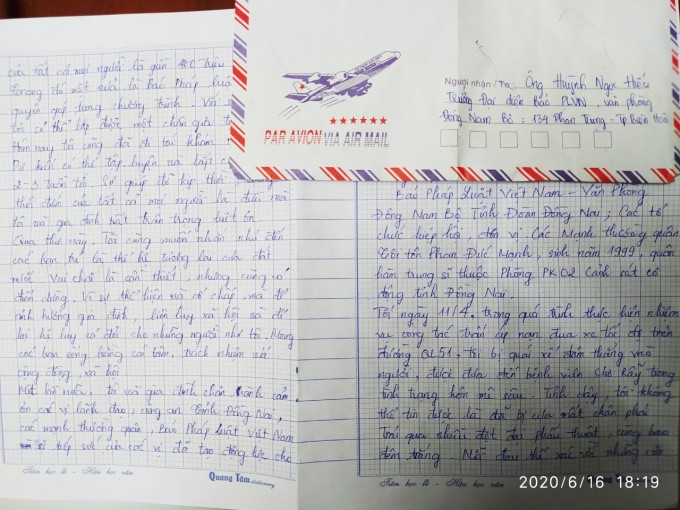 của tất cả mọi người là gần 400 triệu
đồng
một nửa là Báo Pháp luật
quyên góp trong chương trình. Với
tôi có thể lắp được một chân giả
Hôm nay tôi cũng đã đi tái khám,
Dự kiến có thể tập luyện và lắp
2-3 tuần tới. Sự giúp đỡ kịp thời
thiết thực của tất cả mọi người là điều mà
tôi và gia đình
trân trọng biết ơn
Qua thư này, Tôi cũng muốn nhắn nhủ đến
các bạn trẻ là thế hệ tương lai của đất
nước. Vui chơi là cần thiết, nhưng cũng có
điểm dừng. Vì sự thể hiện
mà để
ảnh hưởng gia đình, liên lụy xã hội mà để
lại hệ lụy
cho những người như tôi. Mong
các bạn sống bằng cái tâm, trách nhiệm với
cộng đồng, xã hội
Một lần nữa, tôi và gia đình chân thành cảm
ơn các vị lãnh đạo, công an tỉnh Đồng Nai,
các mạnh thường quân, Báo Pháp luật Việt Nam
tiếp sức của các vị đã tạo động lực cho
Tiên học lễ - Hậu học văn
Quang Tâm
stationery
Người nhận/To: Ông Huỳnh Ngọc Hiếu
Trưởng Đại diện Báo PLVN, văn phòng
Đông Nam Bộ: 134 Phan Trung - Tp Biên Hoà
PAR AVION VIA AIR MAIL
Báo Pháp Luật Việt Nam - Văn Phòng
Đông Nam Bộ Tỉnh Đoàn Đồng Nai; Các tổ
chức hiệp hội, đơn vị. Các Mạnh thường quân
Tôi tên Phan Đức Mạnh, sinh năm 1999, quân
hàm trung sĩ thuộc Phòng PK02 Cảnh sát cơ
động tỉnh Đồng Nai.
Tối ngày 11/4, trong quá trình thực hiện nhiệm
vụ công tác trấn áp nạn đua xe tốc độ trên
đường QL51. Tôi bị quái xế đâm thẳng vào
người, được đưa đến bệnh viện Chợ Rẫy trong
tình trạng hôn mê sâu. Tỉnh dậy, tôi không
thể tin được là đã bị cưa mất chân phải
Trải qua nhiều đợt đại phẫu thuật, cùng bao
đêm trắng. Nỗi đau thể xác với những cơn
Tiên học lễ - Hậu học văn
2020/6/16 18:19